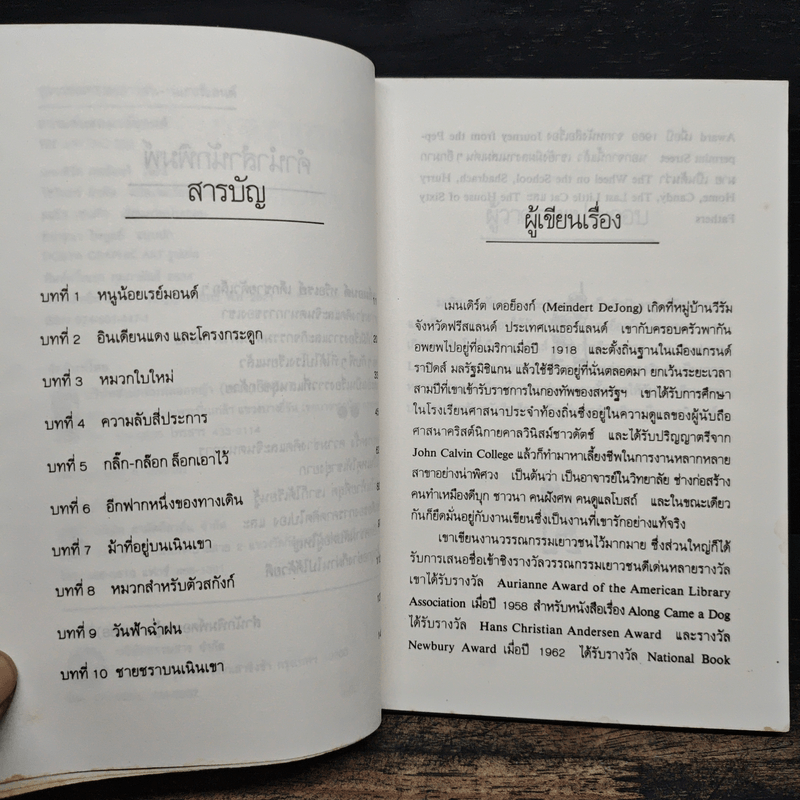 สารบัญ
บทที่ 1 หนูน้อยเรย์มอนด์
บทที่ 2 อินเดียนแดง และโครงกระดูก
บทที่ 3 หมวกใบใหม่
บทที่ 4 ความลับสี่ประการ
บทที่ 5 กลิ๊ก-กล๊อก ล็อกเอาไว้
บทที่ 6 อีกฟากหนึ่งของทางเดิน
บทที่ 7 ม้าที่อยู่บนเนินเขา
บทที่ 8 หมวกสำหรับตัวสกังก์
บทที่ 9 วันฟ้าฉ่ำฝน
บทที่ 10 ชายชราบนเนินเขา
ผู้เขียนเรื่อง
เมนเดิร์ต เดอย็องก์ (Meindert DeJong) เกิดที่หมู่บ้านวีรัม
จังหวัดฟรีสแลนด์ ประเทศเนเธอร์แลนด์ เขากับครอบครัวพากัน
อพยพไปอยู่ที่อเมริกาเมื่อปี 1918 และตั้งถิ่นฐานในเมืองแกรนด์
ราปิดส์ มลรัฐมิชิแกน แล้วใช้ชีวิตอยู่ที่นั่นตลอดมา ยกเว้นระยะเวลา
สามปีที่เขาเข้ารับราชการในกองทัพของสหรัฐฯ เขาได้รับการศึกษา
ในโรงเรียนศาสนาประจำท้องถิ่นซึ่งอยู่ในความดูแลของผู้นับถือ
ศาสนาคริสต์นิกายคาลวินิสม์ชาวดัตช์ และได้รับปริญญาตรีจาก
John Calvin College แล้วก็ทำมาหาเลี้ยงชีพในการงานหลากหลาย
สาขาอย่างน่าพิศวง เป็นต้นว่า เป็นอาจารย์ในวิทยาลัย ช่างก่อสร้าง
คนทำเหมืองดีบุก ชาวนา คนฝังศพ คนดูแลโบสถ์ และในขณะเดียว
กันก็ยึดมั่นอยู่กับงานเขียนซึ่งเป็นงานที่เขารักอย่างแท้จริง
เขาเขียนงานวรรณกรรมเยาวชนไว้มากมาย ซึ่งส่วนใหญ่ก็ได้
รับการเสนอชื่อเข้าชิงรางวัลวรรณกรรมเยาวชนดีเด่นหลายรางวัล
เขาได้รับรางวัล Aurianne Award of the American Library
Association เมื่อปี 1958 สำหรับหนังสือเรื่อง Along Came a Dog
ได้รับรางวัล Hans Christian Andersen Award และรางวัล
Newbury Award เมื่อปี 1962 ได้รับรางวัล National Book